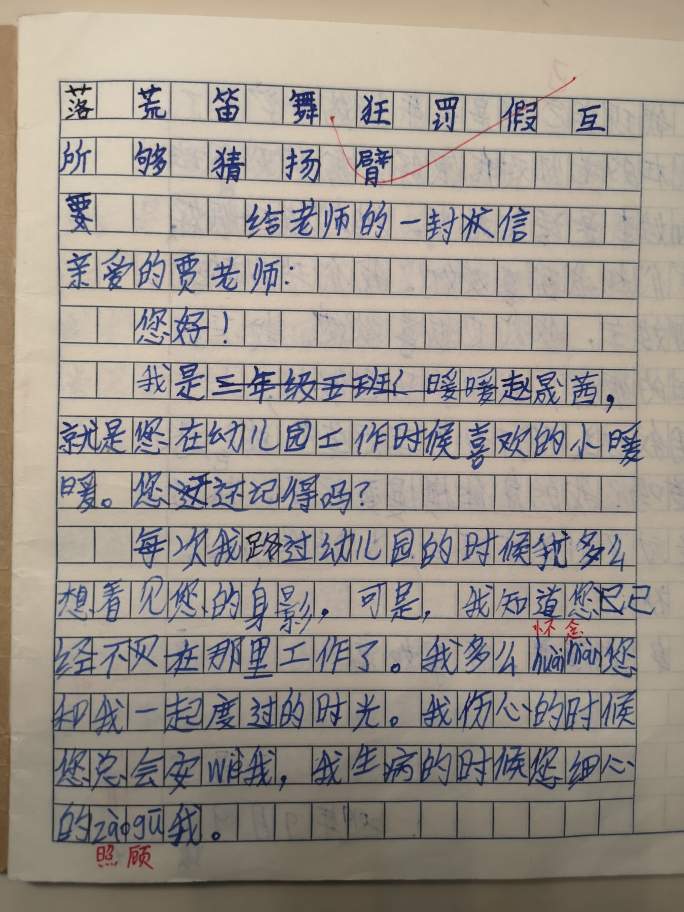 落 荒 笛 舞 狂 罚 假 互
所 够 猜 扬 臂
要 给老师的一封信
亲爱的贾老师:
您好!
我是三年级五班(暖暖赵晟茜,
就是您在幼儿园工作时候喜欢的小暖
暖。您还记得吗?
每次我路过幼儿园的时候我多么
想看见您的身影。可是,我知道您已
怀念
经不在那里工作了。我多么huáiniàn您
和我一起度过的时光。我伤心的时候
您总会安wèi我,我生病的时候您细心
的zàogù我。
照顾